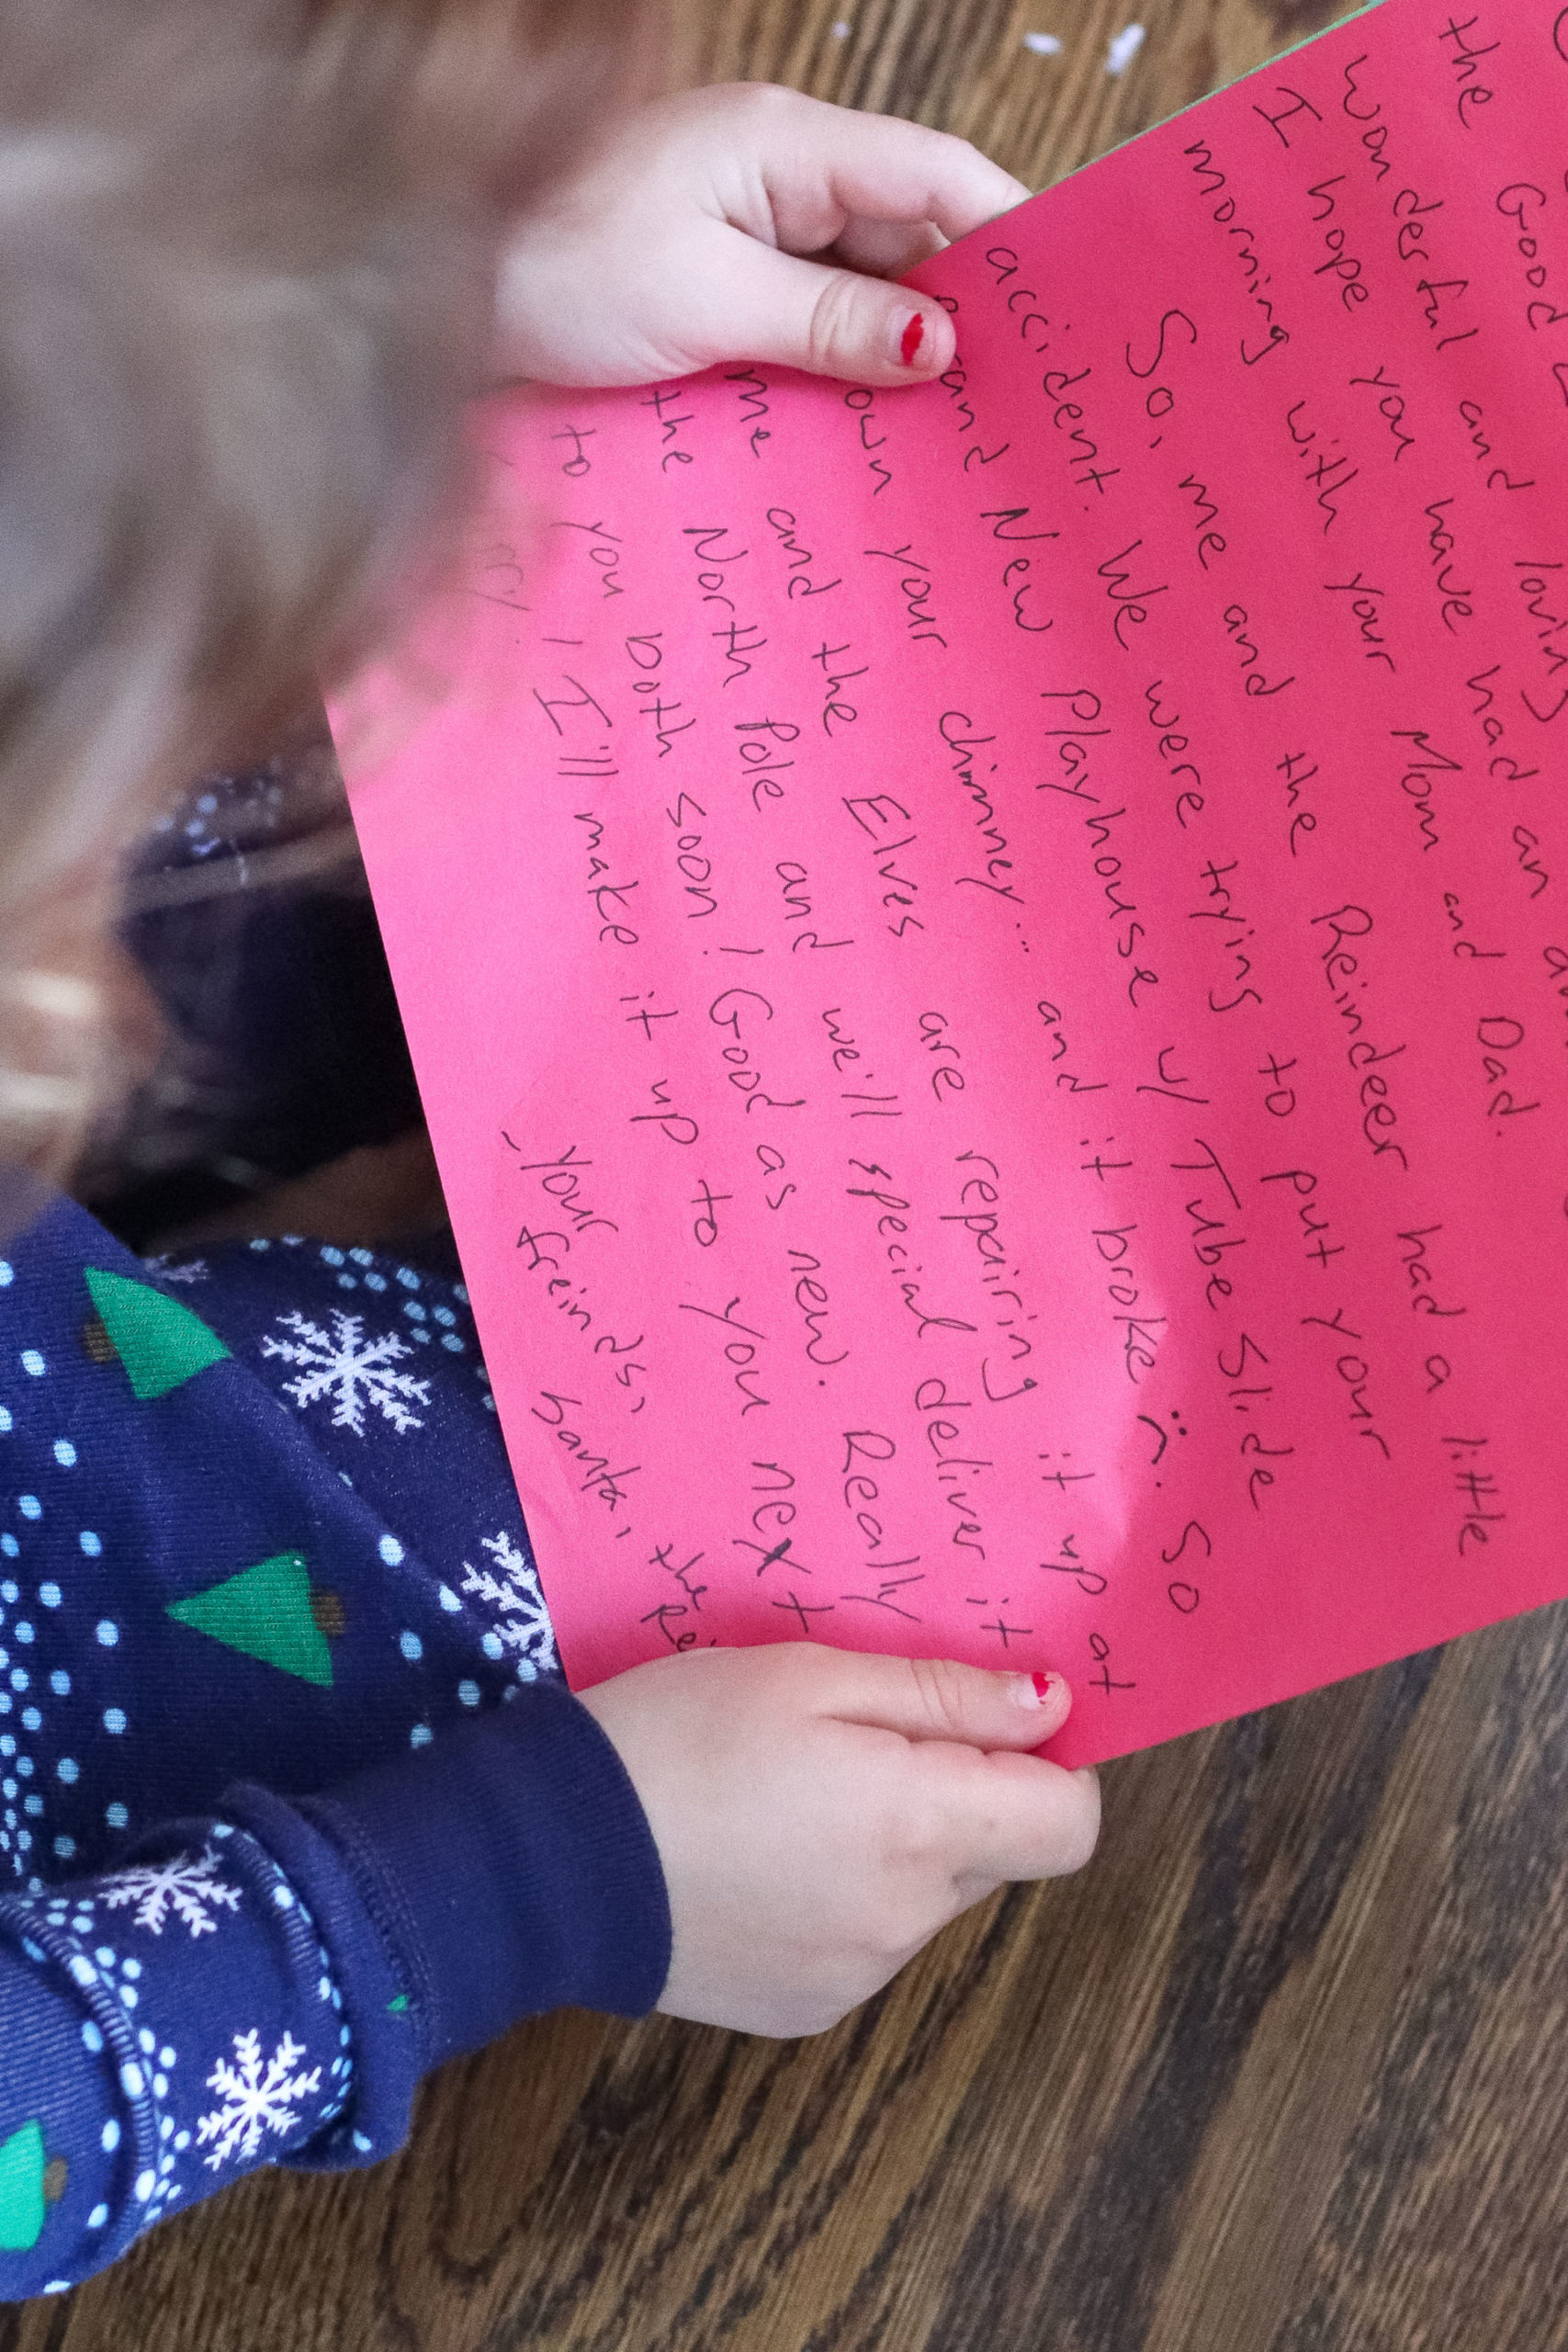 the Good
wonderful and loving
I hope you have had an
morning with your Mom and Dad.
So, me and the Reindeer had a little
accident. We were trying to put your
Brand New Playhouse w/ Tube Slide
down your chimney... and it broke :(. So
me and the Elves are repairing it up at
the North Pole and we'll special deliver it
to you both soon! Good as new. Really
! I'll make it up to you next
- your freinds,
Santa, the